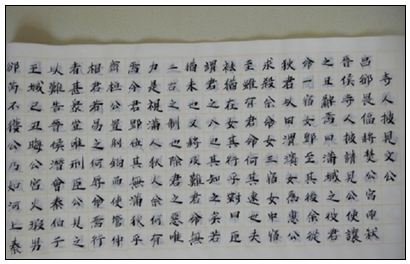 寺人披見文公
呂郤畏偪將焚公宮而弒
晉侯寺人披請見公使讓
之且辭焉曰蒲城之役君
命一宿女即至其後余從
狄君以田渭濱女為惠公
求殺余命女三宿女中宿
至雖有君命何其速也夫
袪猶在女其行乎對曰臣
謂君之入也其知之矣若
猶未也又將及難君命無
二古之制也除君之惡唯
力是視蒲人狄人余何有
焉今君即位其無蒲狄乎
齊桓公置射鉤而使管仲
相君若易之何辱命焉行
者甚眾豈唯刑臣公見之
以難告晉侯潛會秦伯于
王城己丑晦公宮火瑕甥
郤芮不獲公乃如河上秦